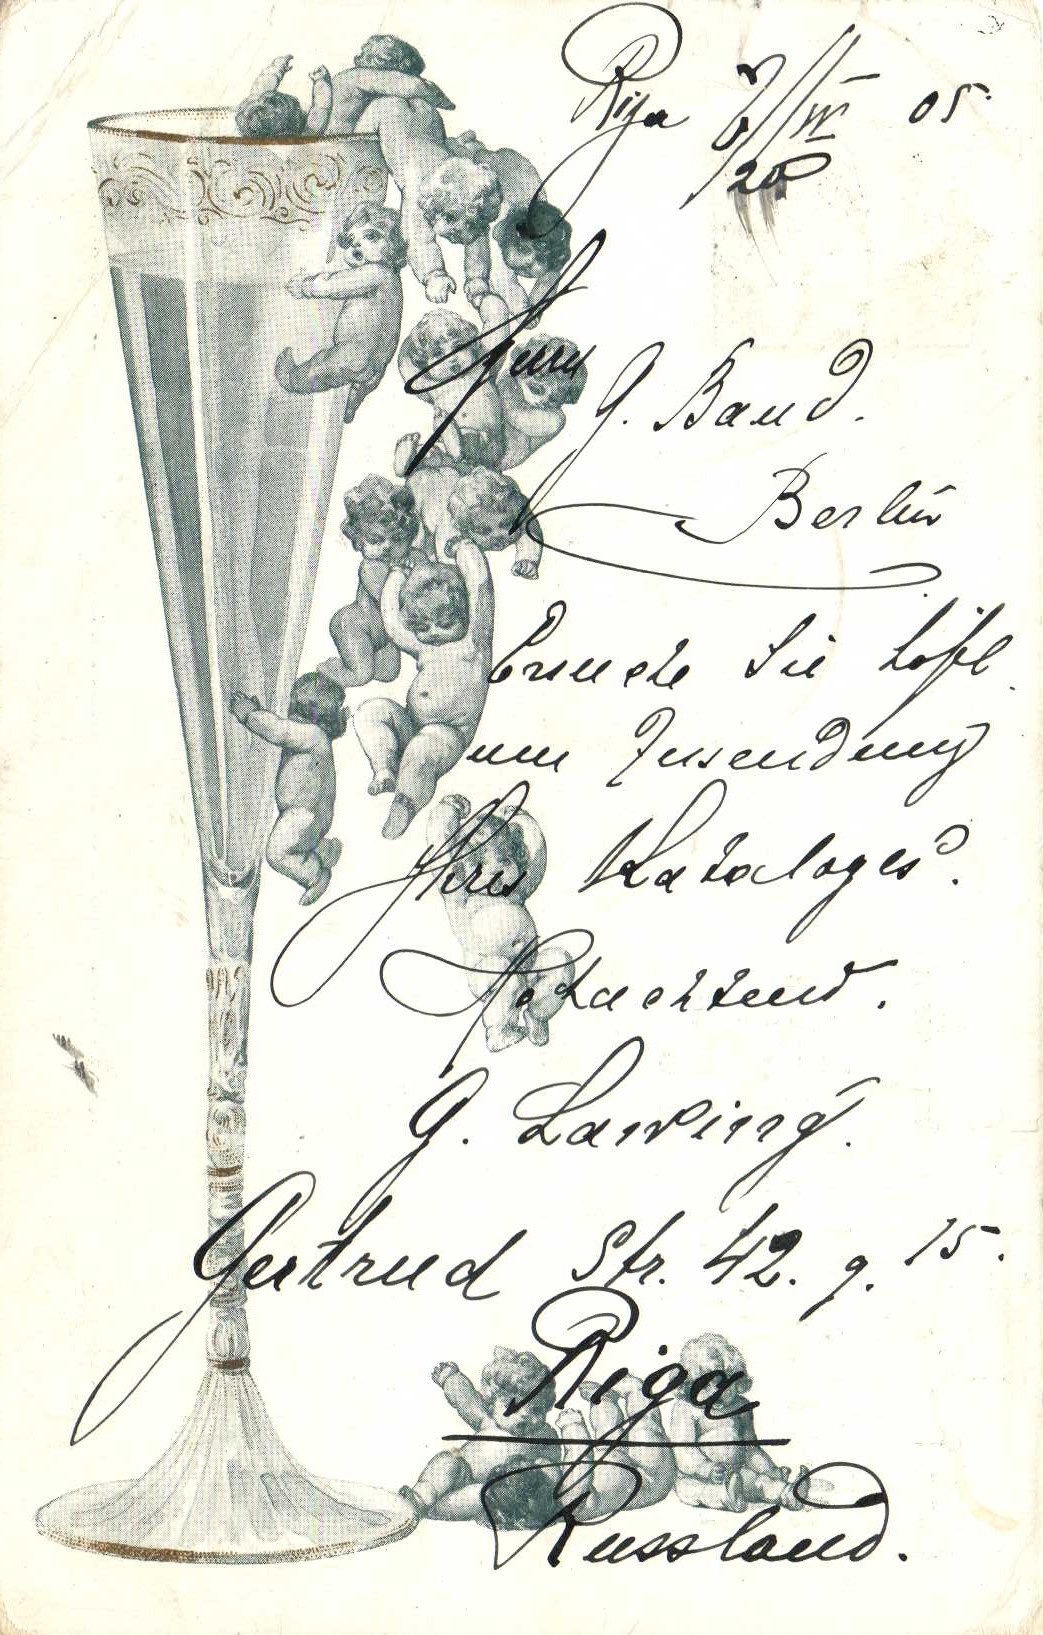 Riga 7/IV 05
20
Herrn
G. Baud.
Berlin
Ersuche Sie höfl.
um Zusendung
Ihres Kataloges.
Hochachtend.
G. Lawing.
Gertrud Str. 42. q. 15.
Riga
Russland.